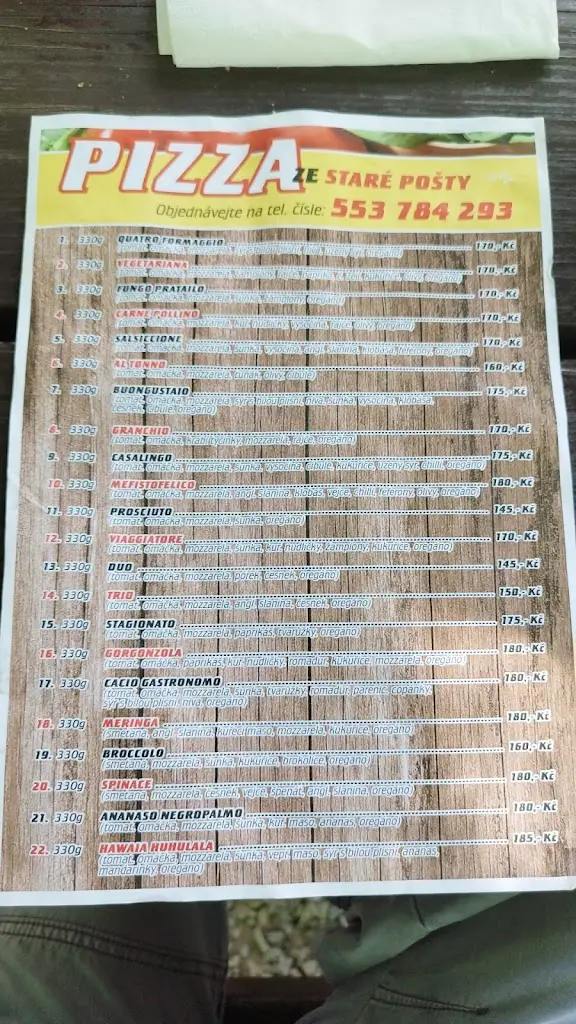 PIZZA ZE STARÉ POŠTY
Objednávejte na tel. čísle: 553 784 293
1. 330g QUATRO FORMAGGIO 170,-Kč
2. 330g VEGETARIANA 170,-Kč
3. 330g FUNGO PRATAILO 170,-Kč
(tomat. omáčka, mozzarela, šunka, žampiony, oregano)
4. 330g CARNE POLLINO 170,-Kč
(tomat. omáčka, mozzarela, kuř. nudličky, vysočina, rajče, olivy, oregano)
5. 330g SALSICCIONE 170,-Kč
(tomat. omáčka, mozzarela, šunka, vysočina, angl. slanina, klobása, feferony, oregano)
6. 330g AL TONNO 160,-Kč
(tomat. omáčka, mozzarela, tuňák, olivy, cibule)
7. 330g BUONGUSTAIO 175,-Kč
(tomat. omáčka, mozzarela, sýr s bílou plísní, niva, šunka, vysočina, klobása,
česnek, cibule, oregano)
8. 330g GRANCHIO 170,-Kč
(tomat. omáčka, krabí tyčinky, mozzarela, rajče, oregano)
9. 330g CASALINGO 175,-Kč
(tomat. omáčka, mozzarela, šunka, vysočina, cibule, kukuřice, uzený sýr, chilli, oregano)
10. 330g MEFISTOFELICO 180,-Kč
(tomat. omáčka, mozzarela, angl. slanina, klobás, vejce, chilli, feferony, olivy, oregano)
11. 330g PROSCIUTO 145,-Kč
(tomat. omáčka, mozzarela, šunka, oregano)
12. 330g VIAGGIATORE 170,-Kč
(tomat. omáčka, mozzarela, šunka, kuř. nudličky, žampiony, kukuřice, oregano)
13. 330g DUO 145,-Kč
(tomat. omáčka, mozzarela, pórek, česnek, oregano)
14. 330g TRIO 150,-Kč
(tomat. omáčka, mozzarela, angl. slanina, česnek, oregano)
15. 330g STAGIONATO 175,-Kč
(tomat. omáčka, mozzarela, paprikáš, tvarůžky, oregano)
16. 330g GORGONZOLA 180,-Kč
(tomat. omáčka, paprikáš, kuř. nudličky, romadur, kukuřice, mozzarela, oregano)
17. 330g CACIO GASTRONOMO 180,-Kč
(tomat. omáčka, mozzarela, šunka, tvarůžky, romadur, parenic, copánky,
sýr s bílou plísní, niva, oregano)
18. 330g MERINGA 180,-Kč
(smetana, angl. slanina, kuřecí maso, mozzarela, kukuřice, oregano)
19. 330g BROCCOLO 160,-Kč
(smetana, mozzarela, šunka, kukuřice, brokolice, oregano)
20. 330g SPINACE 180,-Kč
(smetana, mozzarela, česnek, vejce, špenát, angl. slanina, oregano)
21. 330g ANANASO NEGROPALMO 180,-Kč
(tomat. omáčka, mozzarela, šunka, kuř. maso, ananas, oregano)
22. 330g HAWAIA HUHULALA 185,-Kč
(tomat. omáčka, mozzarela, šunka, vepř. maso, sýr s bílou plísní, ananas,
mandarinky, oregano)